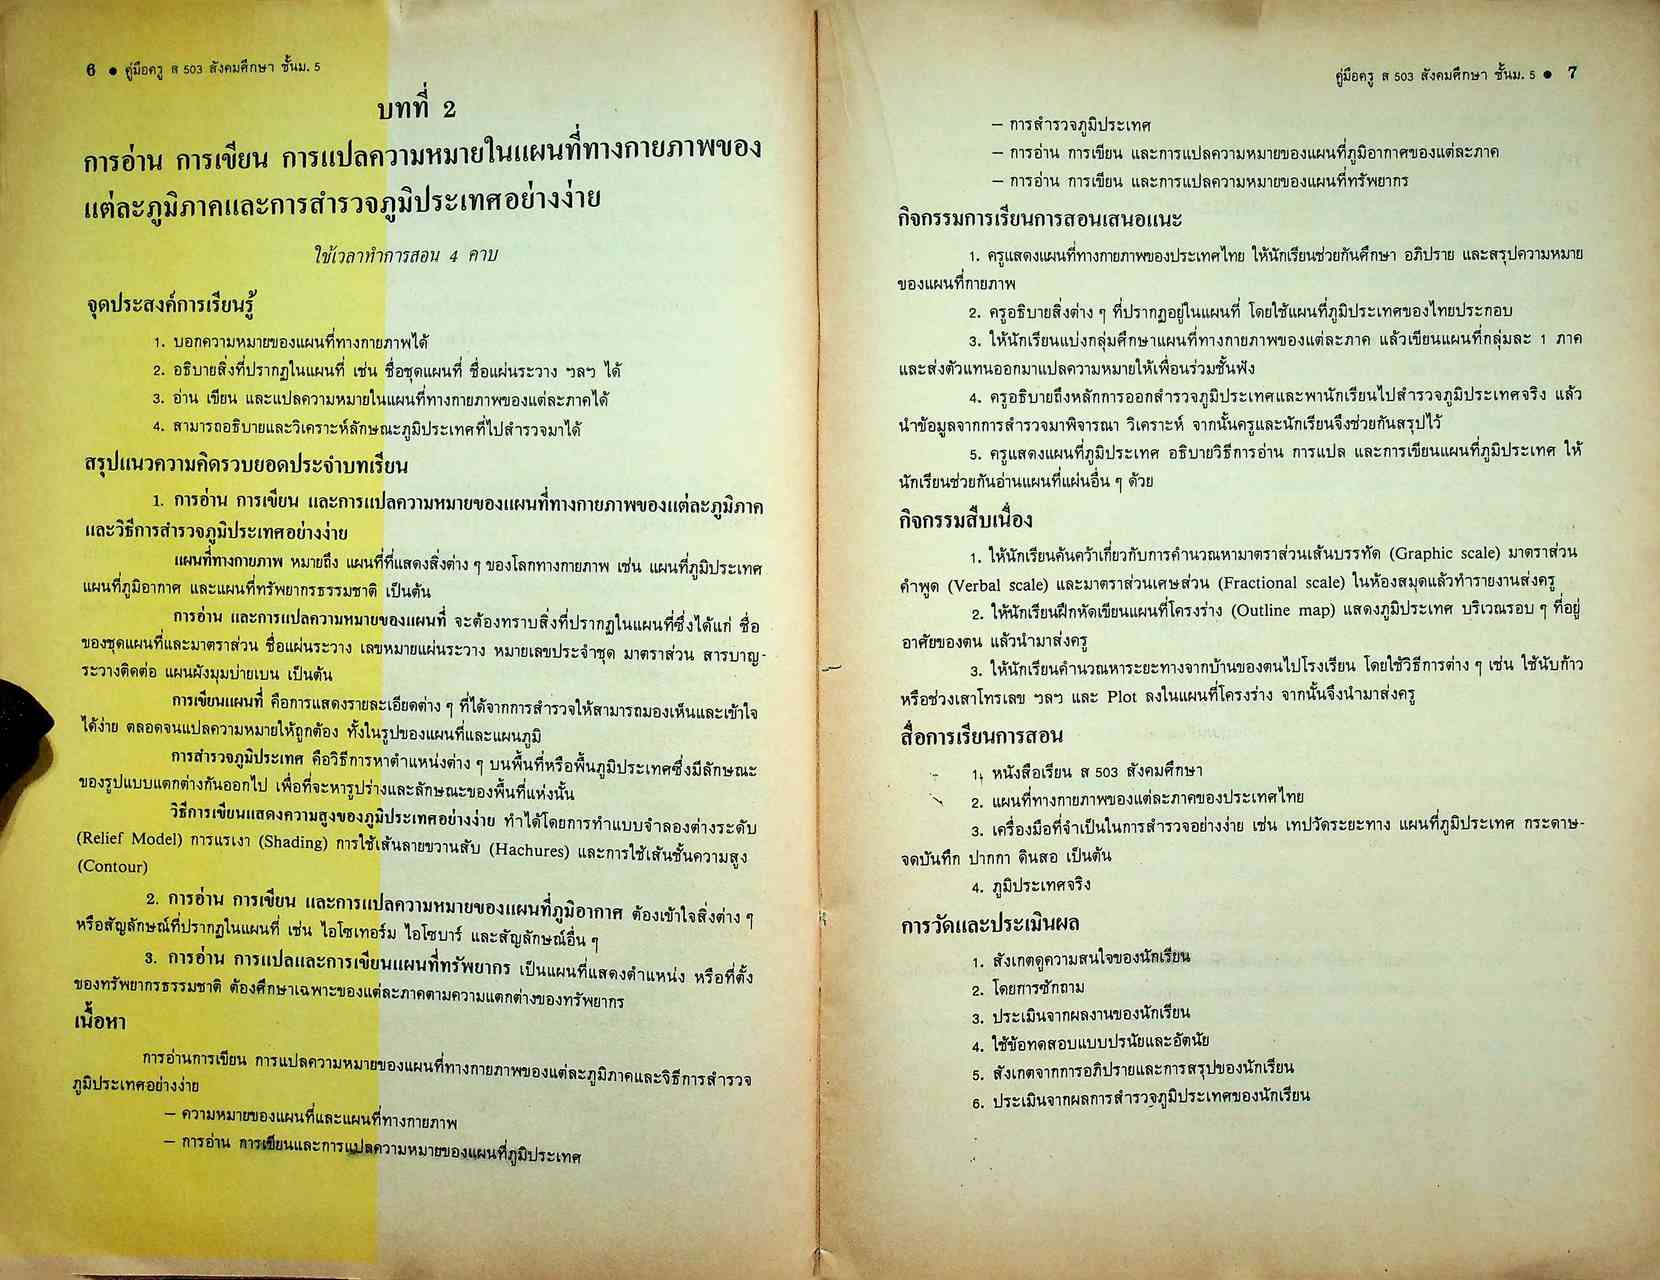 6 ● คู่มือครู ส 503 สังคมศึกษา ชั้นม. 5
บทที่ 2
การอ่าน การเขียน การแปลความหมายในแผนที่ทางกายภาพของ
แต่ละภูมิภาคและการสำรวจภูมิประเทศอย่างง่าย
ใช้เวลาทำการสอน 4 คาบ
จุดประสงค์การเรียนรู้
1. บอกความหมายของแผนที่ทางกายภาพได้
2. อธิบายสิ่งที่ปรากฏในแผนที่ เช่น ชื่อชุดแผนที่ ชื่อแผ่นระวาง ฯลฯ ได้
3. อ่าน เขียน และแปลความหมายในแผนที่ทางกายภาพของแต่ละภาคได้
4. สามารถอธิบายและวิเคราะห์ลักษณะภูมิประเทศที่ไปสำรวจมาได้
สรุปแนวความคิดรวบยอดประจำบทเรียน
1. การอ่าน การเขียน และการแปลความหมายของแผนที่ทางกายภาพของแต่ละภูมิภาค
และวิธีการสำรวจภูมิประเทศอย่างง่าย
แผนที่ทางกายภาพ หมายถึง แผนที่ที่แสดงสิ่งต่าง ๆ ของโลกทางกายภาพ เช่น แผนที่ภูมิประเทศ
แผนที่ภูมิอากาศ และแผนที่ทรัพยากรธรรมชาติ เป็นต้น
การอ่าน และการแปลความหมายของแผนที่ จะต้องทราบสิ่งที่ปรากฏในแผนที่ซึ่งได้แก่ ชื่อ
ของชุดแผนที่และมาตราส่วน ชื่อแผ่นระวาง เลขหมายแผ่นระวาง หมายเลขประจำชุด มาตราส่วน สารบาญ-
ระวางติดต่อ แผนผังมุมบ่ายเบน เป็นต้น
การเขียนแผนที่ คือการแสดงรายละเอียดต่าง ๆ ที่ได้จากการสำรวจให้สามารถมองเห็นและเข้าใจ
ได้ง่าย ตลอดจนแปลความหมายให้ถูกต้อง ทั้งในรูปของแผนที่และแผนภูมิ
การสำรวจภูมิประเทศ คือวิธีการหาตำแหน่งต่าง ๆ บนพื้นที่หรือพื้นภูมิประเทศซึ่งมีลักษณะ
ของรูปแบบแตกต่างกันออกไป เพื่อที่จะหารูปร่างและลักษณะของพื้นที่แห่งนั้น
วิธีการเขียนแสดงความสูงของภูมิประเทศอย่างง่าย ทำได้โดยการทำแบบจำลองต่างระดับ
(Relief Model) การแรเงา (Shading) การใช้เส้นลายขวานสับ (Hachures) และการใช้เส้นชั้นความสูง
(Contour)
2. การอ่าน การเขียน และการแปลความหมายของแผนที่ภูมิอากาศ ต้องเข้าใจสิ่งต่าง ๆ
หรือสัญลักษณ์ที่ปรากฏในแผนที่ เช่น ไอโซเทอร์ม ไอโซบาร์ และสัญลักษณ์อื่น ๆ
3. การอ่าน การแปลและการเขียนแผนที่ทรัพยากร เป็นแผนที่แสดงตำแหน่ง หรือที่ตั้ง
ของทรัพยากรธรรมชาติ ต้องศึกษาเฉพาะของแต่ละภาคตามความแตกต่างของทรัพยากร
เนื้อหา
การอ่านการเขียน การแปลความหมายของแผนที่ทางกายภาพของแต่ละภูมิภาคและจิธีการสำรวจ
ภูมิประเทศอย่างง่าย
– ความหมายของแผนที่และแผนที่ทางกายภาพ
– การอ่าน การเขียนและการแปลความหมายของแผนที่ภูมิประเทศ
คู่มือครู ส 503 สังคมศึกษา ชั้นม. 5 ● 7
– การสำรวจภูมิประเทศ
– การอ่าน การเขียน และการแปลความหมายของแผนที่ภูมิอากาศของแต่ละภาค
– การอ่าน การเขียน และการแปลความหมายของแผนที่ทรัพยากร
กิจกรรมการเรียนการสอนเสนอแนะ
1. ครูแสดงแผนที่ทางกายภาพของประเทศไทย ให้นักเรียนช่วยกันศึกษา อภิปราย และสรุปความหมาย
ของแผนที่กายภาพ
2. ครูอธิบายสิ่งต่าง ๆ ที่ปรากฏอยู่ในแผนที่ โดยใช้แผนที่ภูมิประเทศของไทยประกอบ
3. ให้นักเรียนแบ่งกลุ่มศึกษาแผนที่ทางกายภาพของแต่ละภาค แล้วเขียนแผนที่กลุ่มละ 1 ภาค
และส่งตัวแทนออกมาแปลความหมายให้เพื่อนร่วมชั้นฟัง
4. ครูอธิบายถึงหลักการออกสำรวจภูมิประเทศและพานักเรียนไปสำรวจภูมิประเทศจริง แล้ว
นำข้อมูลจากการสำรวจมาพิจารณา วิเคราะห์ จากนั้นครูและนักเรียนจึงช่วยกันสรุปไว้
5. ครูแสดงแผนที่ภูมิประเทศ อธิบายวิธีการอ่าน การแปล และการเขียนแผนที่ภูมิประเทศ ให้
นักเรียนช่วยกันอ่านแผนที่แผ่นอื่น ๆ ด้วย
กิจกรรมสืบเนื่อง
1. ให้นักเรียนค้นคว้าเกี่ยวกับการคำนวณหามาตราส่วนเส้นบรรทัด (Graphic scale) มาตราส่วน
คำพูด (Verbal scale) และมาตราส่วนเศษส่วน (Fractional scale) ในห้องสมุดแล้วทำรายงานส่งครู
2. ให้นักเรียนฝึกหัดเขียนแผนที่โครงร่าง (Outline map) แสดงภูมิประเทศ บริเวณรอบ ๆ ที่อยู่
อาศัยของตน แล้วนำมาส่งครู
3. ให้นักเรียนคำนวณหาระยะทางจากบ้านของตนไปโรงเรียน โดยใช้วิธีการต่าง ๆ เช่น ใช้นับก้าว
หรือช่วงเสาโทรเลข ฯลฯ และ Plot ลงในแผนที่โครงร่าง จากนั้นจึงนำมาส่งครู
สื่อการเรียนการสอน
1. หนังสือเรียน ส 503 สังคมศึกษา
2. แผนที่ทางกายภาพของแต่ละภาคของประเทศไทย
3. เครื่องมือที่จำเป็นในการสำรวจอย่างง่าย เช่น เทปวัดระยะทาง แผนที่ภูมิประเทศ กระดาษ-
จดบันทึก ปากกา ดินสอ เป็นต้น
4. ภูมิประเทศจริง
การวัดและประเมินผล
1. สังเกตดูความสนใจของนักเรียน
2. โดยการซักถาม
3. ประเมินจากผลงานของนักเรียน
4. ใช้ข้อทดสอบแบบปรนัยและอัตนัย
5. สังเกตจากการอภิปรายและการสรุปของนักเรียน
6. ประเมินจากผลการสำรวจภูมิประเทศของนักเรียน